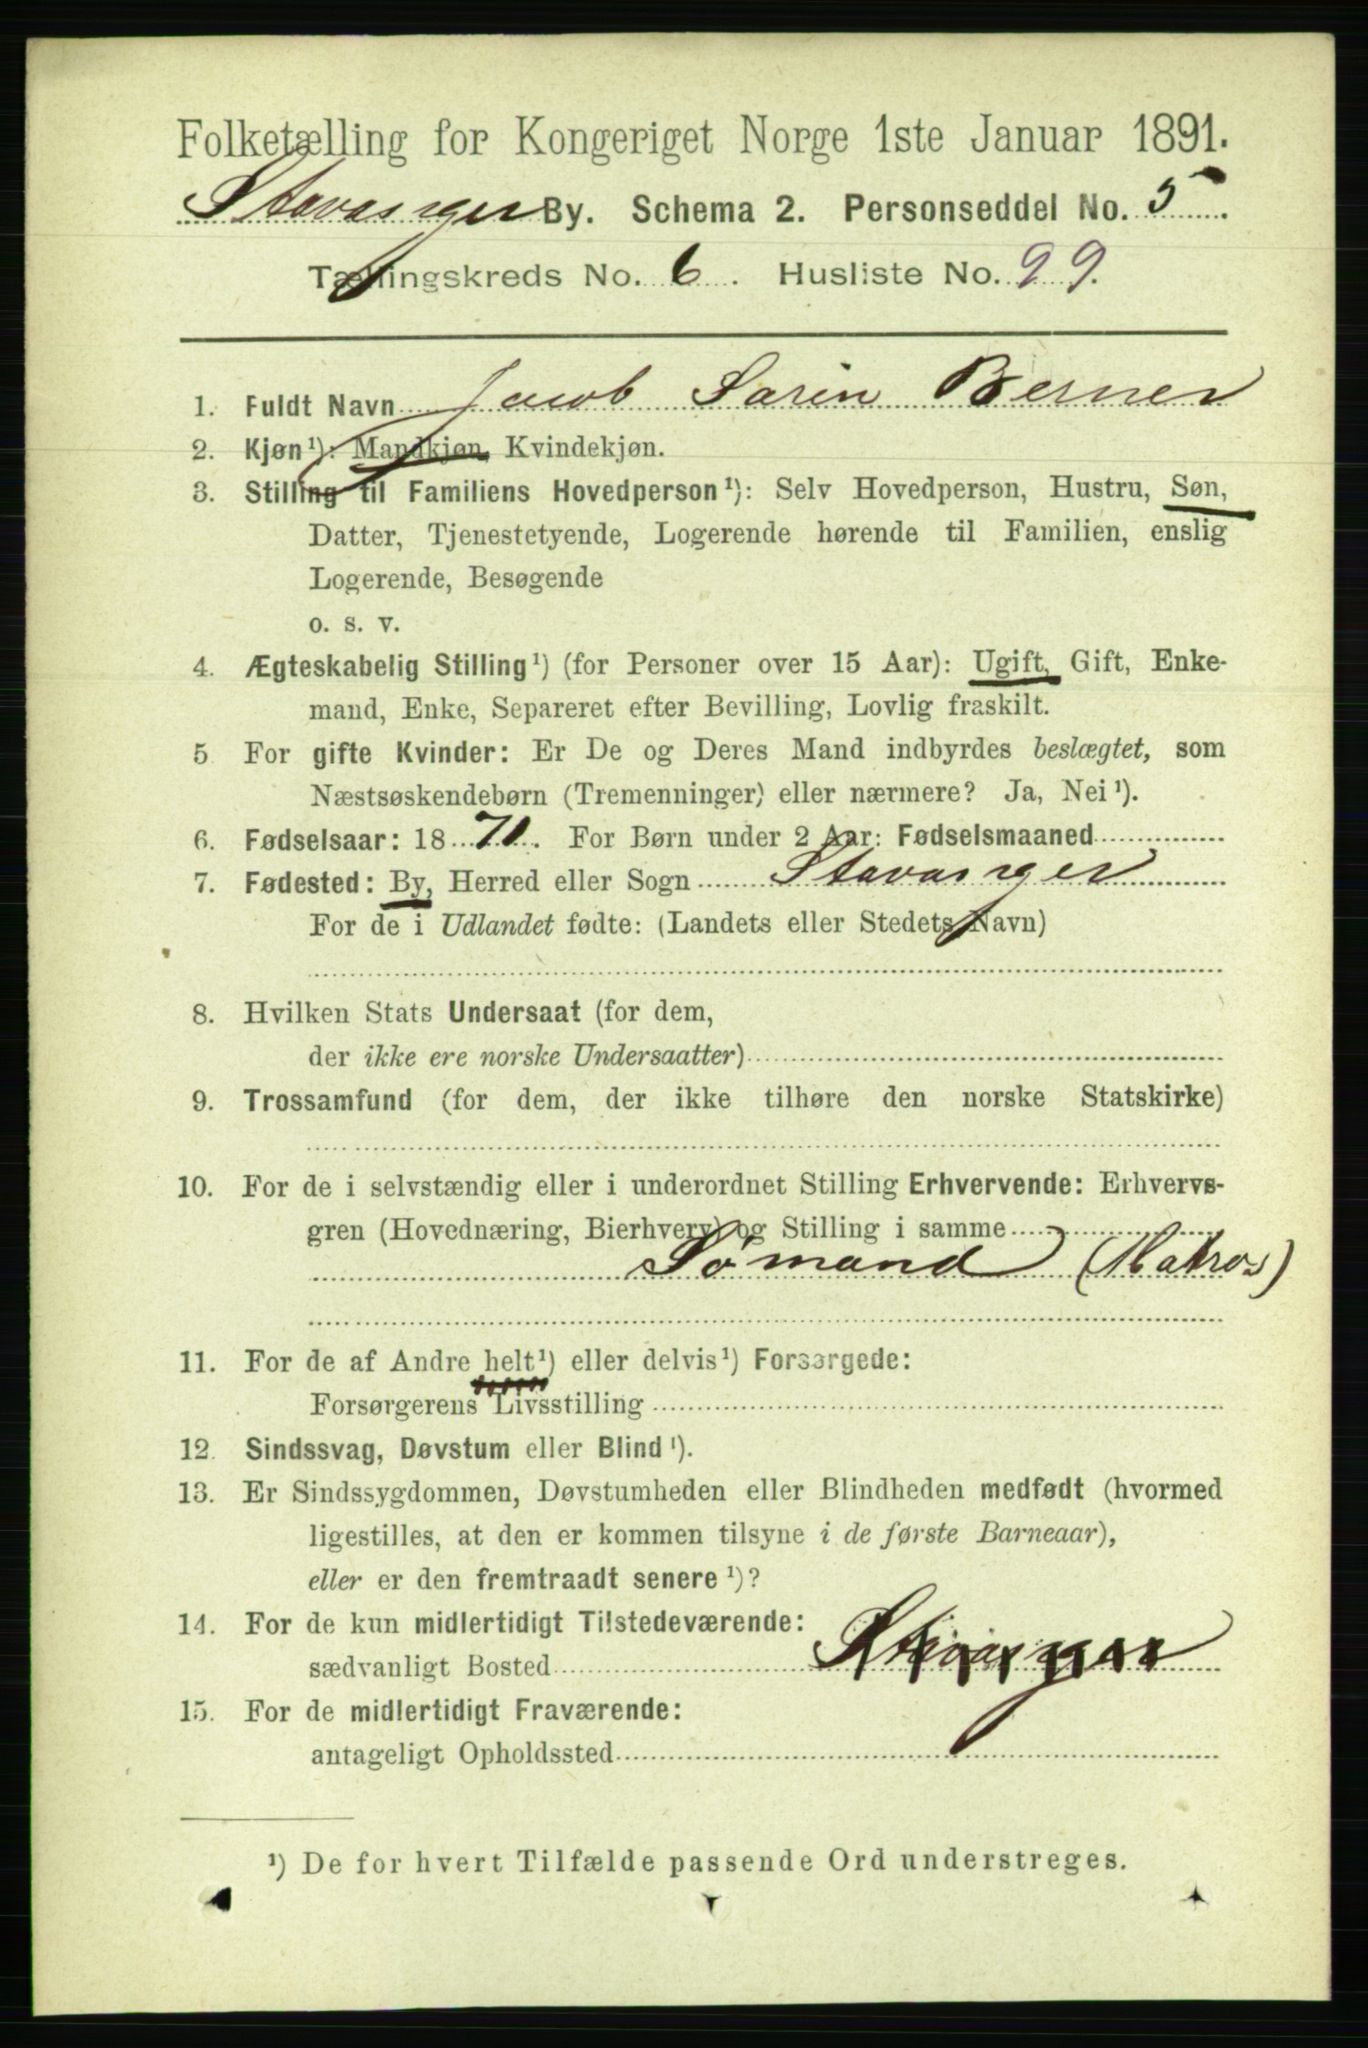 Folketælling for Kongeriget Norge 1ste Januar 1891.
Stavanger By. Schema 2. Personseddel No. 5.
Tællingskreds No. 6. Husliste No. 99.
1. Fuldt Navn Jacob Sarin Berner
2. Kjøn¹): Mandkjøn, Kvindekjøn.
3. Stilling til Familiens Hovedperson¹): Selv Hovedperson, Hustru, Søn,
Datter, Tjenestetyende, Logerende hørende til Familien, enslig
Logerende, Besøgende
o. s. v.
4. Ægteskabelig Stilling¹) (for Personer over 15 Aar): Ugift, Gift, Enke-
mand, Enke, Separeret efter Bevilling, Lovlig fraskilt.
5 For gifte Kvinder: Er De og Deres Mand indbyrdes beslægtet, som
Næstsøskendebørn (Tremenninger) eller nærmere? Ja, Nei¹).
6. Fødselsaar: 1871. For Børn under 2 Aar: Fødselsmaaned
7. Fødested: By, Herred eller Sogn Stavanger
For de i Udlandet fødte: (Landets eller Stedets Navn)
8. Hvilken Stats Undersaat (for dem,
der ikke ere norske Undersaatter)
9. Trossamfund (for dem, der ikke tilhøre den norske Statskirke)
10. For de i selvstændig eller i underordnet Stilling Erhvervende: Erhvervs-
gren (Hovednæring, Bierhverv) og Stilling i samme
Sømand (Matros)
11. For de af Andre helt¹) eller delvis¹) Forsørgede:
Forsørgerens Livsstilling
12. Sindssvag, Døvstum eller Blind¹).
13. Er Sindssygdommen, Døvstumheden eller Blindheden medfødt (hvormed
ligestilles, at den er kommen tilsyne i de første Barneaar),
eller er den fremtraadt senere¹)?
14. For de kun midlertidigt Tilstedeværende:
sædvanligt Bosted Stavanger
15. For de midlertidigt Fraværende:
antageligt Opholdssted
¹) De for hvert Tilfælde passende Ord understreges.